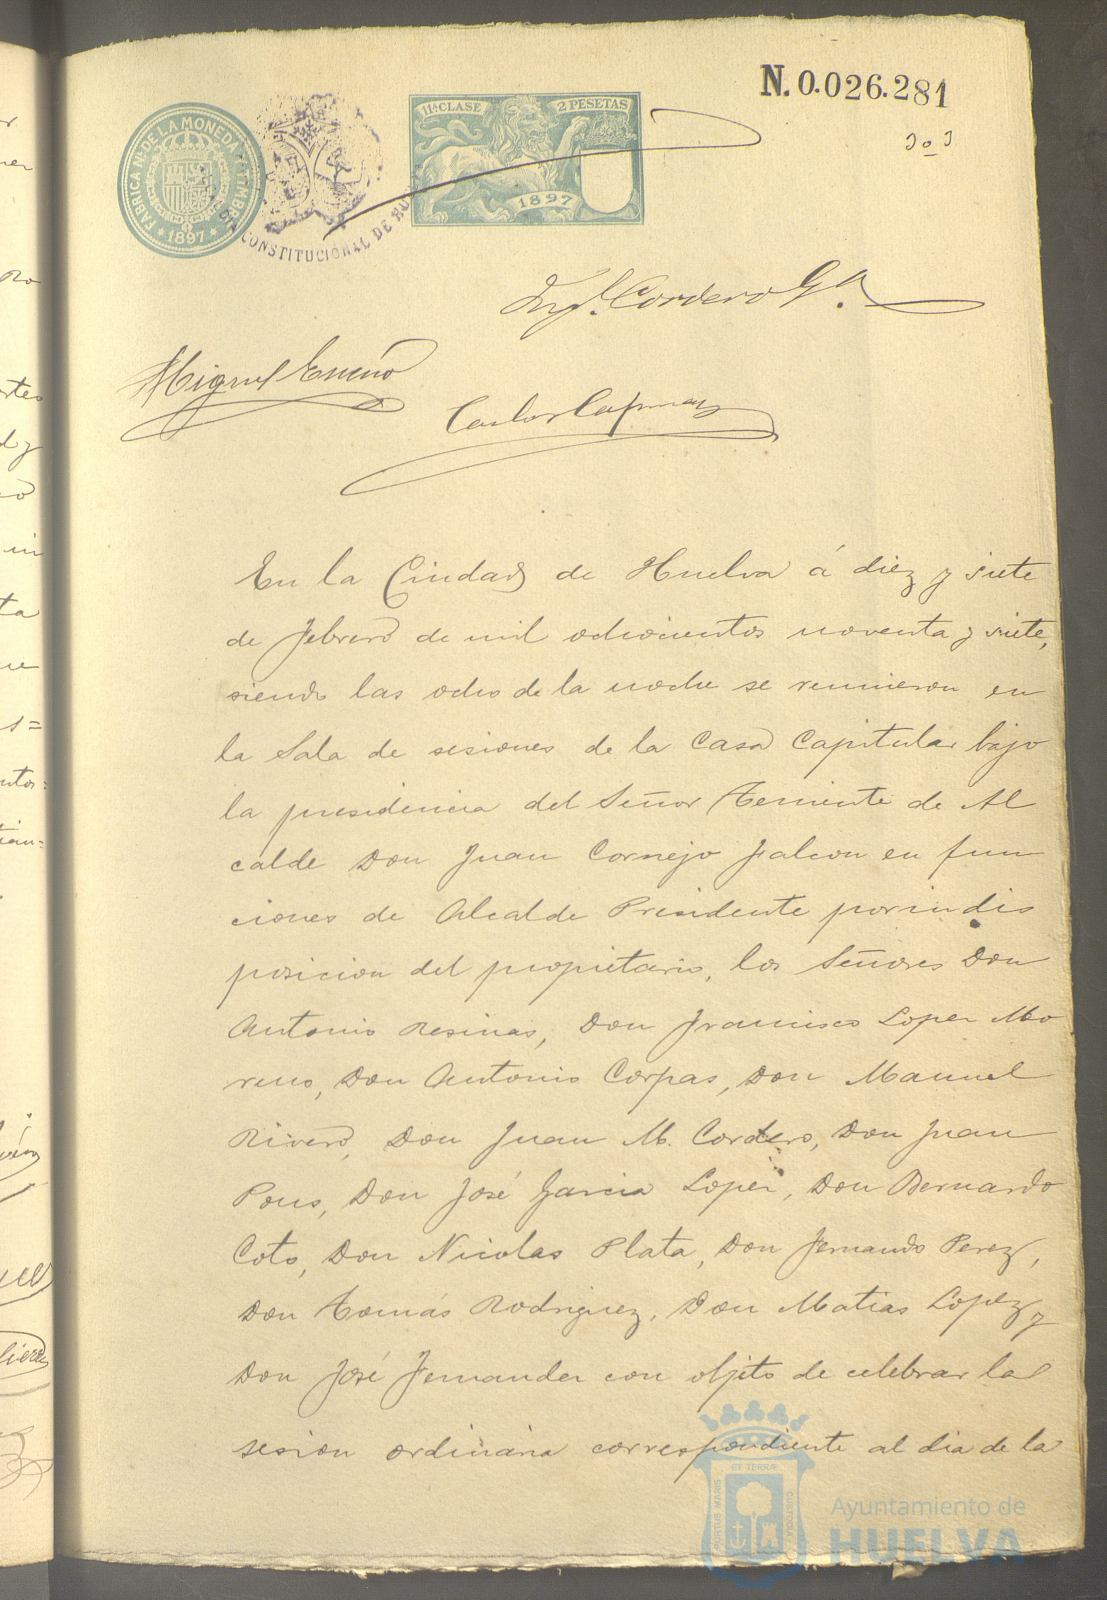 N. 0.026.281
11ª CLASE 2 PESETAS
FABRICA NL. DE LA MONEDA Y TIMBRE
1897
1897
CONSTITUCIONAL DE HU
Cordero Ga.
Miguel
Carlos
En la Ciudad de Huelva á diez y siete
de Febrero de mil ochocientos noventa y siete,
siendo las ocho de la noche se reunieron en
la Sala de sesiones de la Casa Capitular bajo
la presidencia del Señor Teniente de Al
calde Don Juan Cornejo Falcon en fun
ciones de Alcalde Presidente por indis
posicion del propietario, los Señores Don
Antonio Resinas, Don Francisco Lopez Mo
reno, Don Antonio Corpas, Don Manuel
Rivero, Don Juan M. Cordero, Don Juan
Pons, Don José Garcia Lopez, Don Bernardo
Coto, Don Nicolas Plata, Don Fernando Perez,
Don Tomás Rodriguez, Don Matias Lopez y
Don José Fernandez con objeto de celebrar la
sesion ordinaria correspondiente al dia de la
PORTUS MARIS ET TERRÆ CUSTODIA
Ayuntamiento de
HUELVA